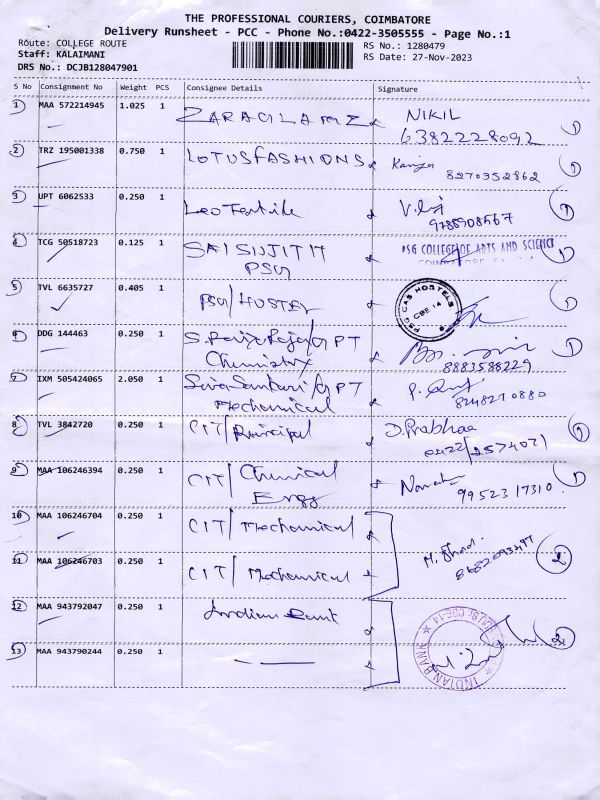 THE PROFESSIONAL COURIERS, COIMBATORE
Delivery Runsheet - PCC - Phone No.:0422-3505555 - Page No.:1
Route: COLLEGE ROUTE RS No.: 1280479
Staff: KALAIMANI RS Date: 27-Nov-2023
DRS No.: DCJB128047901
S No Consignment No Weight PCS Consignee Details Signature
1 MAA 572214945 1.025 1 ZARAGLAMZ NIKIL 1
6382228092
2 TRZ 195001338 0.750 1 LOTUSFASHIONS 1
8270352862
3 UPT 6062533 0.250 1 Leo Textile 1
9788908567
4 TCG 50518723 0.125 1 SAI SUJITH PSG COLLEGE OF ARTS AND SCIENCE 1
PSG
5 TVL 6635727 0.405 1 PSG/HOSTEL PSG CAS HOSTELS CBE-14 1
6 DDG 144463 0.250 1 GPT 1
Chemistry 8883588229
7 IXM 505424065 2.050 1 Siva Sankari/GPT
Mechanical 8248210880
8 TVL 3842720 0.250 1 CIT/Principal D.Prabhaa 1
0422/2574071
9 MAA 106246394 0.250 1 CIT/Chemical 1
Engg 9952317310
10 MAA 106246704 0.250 1 CIT/Mechanical
11 MAA 106246703 0.250 1 CIT/Mechanical 2
12 MAA 943792047 0.250 1 Indian Bank 2
13 MAA 943790244 0.250 1 INDIAN BANK